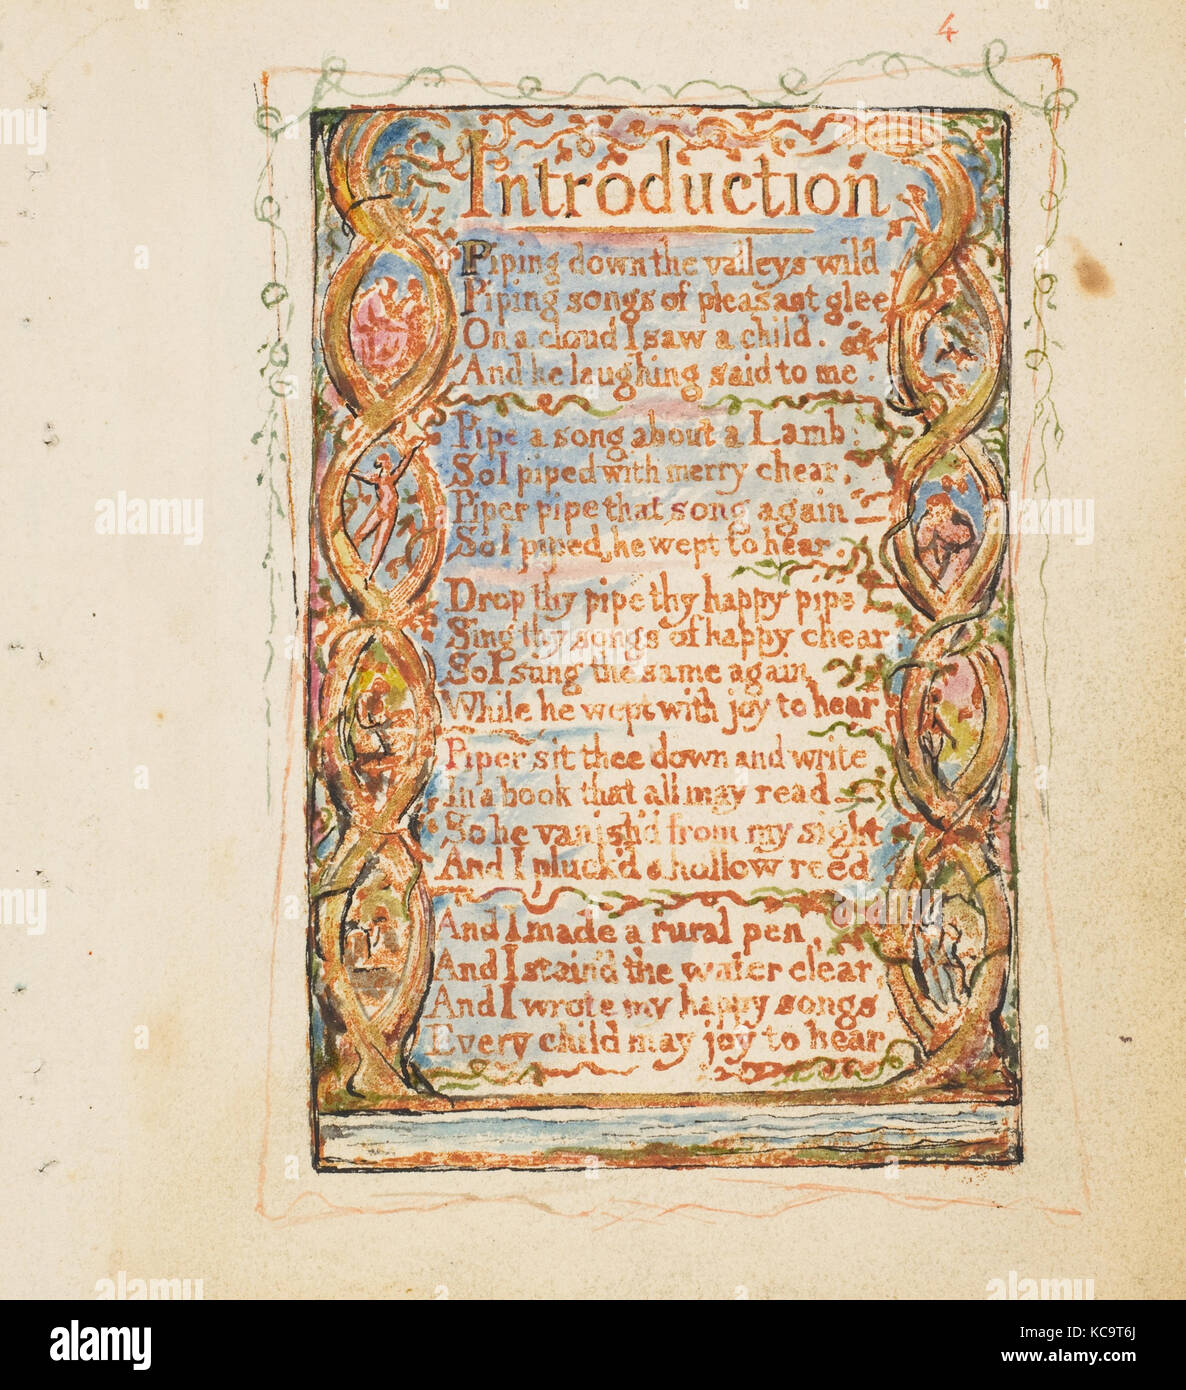 4
Introduction
Piping down the valleys wild
Piping songs of pleasant glee
On a cloud I saw a child.
And he laughing said to me.
Pipe a song about a Lamb:
So I piped with merry chear,
Piper pipe that song again
So I piped, he wept to hear.
Drop thy pipe thy happy pipe
Sing thy songs of happy chear
So I sung the same again
While he wept with joy to hear
Piper sit thee down and write
In a book that all may read
So he vanish'd from my sight
And I pluck'd a hollow reed
And I made a rural pen,
And I stain'd the water clear,
And I wrote my happy songs,
Every child may joy to hear
alamy
Image ID: KC9T6J
www.alamy.com